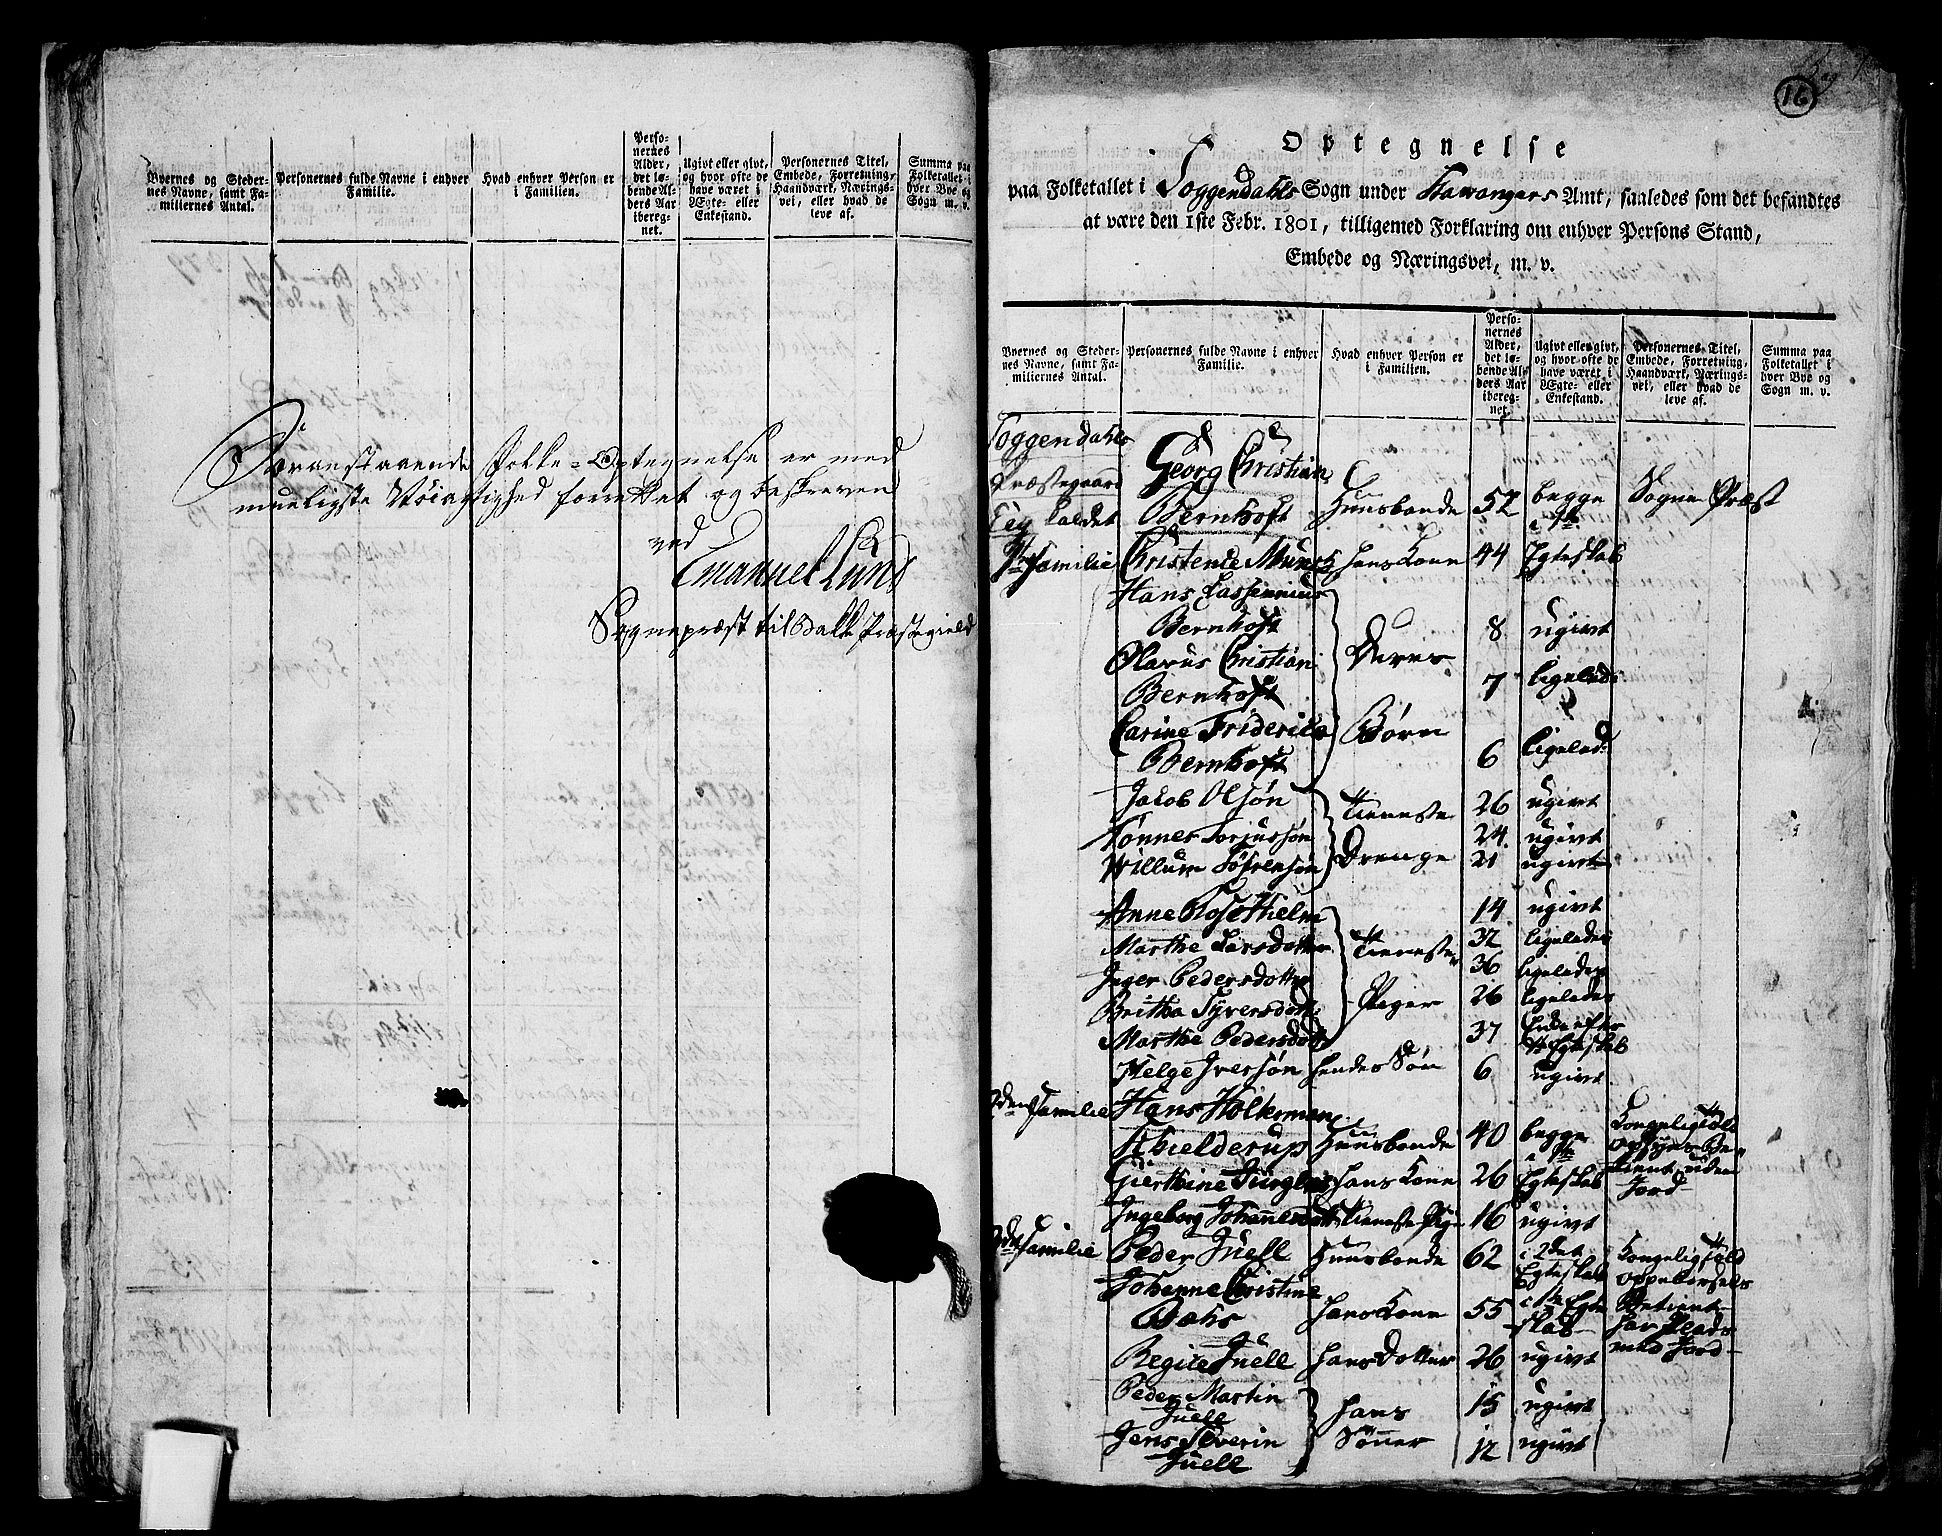 Byernes og Steder-
nes Navne, samt Fa-
miliernes Antal.
Personernes fulde Navne i enhver
Familie.
Hvad enhver Person er
i Familien.
Perso-
nernes
Alder,
det lø-
bende Al-
ders Aar
ibereg-
net.
Ugivt eller givt,
og hvor ofte de
have været i
Ægte- eller
Enkestand.
Personernes Titel,
Embede, Forretning,
Haandværk, Nærings-
vei, eller hvad de
leve af.
Summa paa
Folketallet i
hver Bye og
Sogn m. v.
Foranstaaende Folke-Optegnelse er med
mueligste Nøiagtighed forrettet og beskreven
ved
Emanuel Lund
Sognepræst til Bakke Præstegield
16
Optegnelse
paa Folketallet i Soggendahls Sogn under Stawangers Amt, saaledes som det befandtes
at være den 1ste Febr. 1801, tilligemed Forklaring om enhver Persons Stand,
Embede og Næringsvei, m. v.
Byernes og Steder-
nes Navne, samt Fa-
miliernes Antal.
Personernes fulde Navne i enhver
Familie.
Hvad enhver Person er
i Familien.
Perso-
nernes
Alder,
det lø-
bende Al-
ders Aar
ibereg-
net.
Ugivt eller givt,
og hvor ofte de
have været i
Ægte- eller
Enkestand.
Personernes Titel,
Embede, Forretning,
Haandværk, Nærings-
vei, eller hvad de
leve af.
Summa paa
Folketallet i
hver Bye og
Sogn m. v.
Soggendahls
Præstegaard Georg Christian
kaldet Bernhoft Huusbonde 52 begge i 1te Sogne Præst
Familie Christence Munch hans Kone 44 Egteskab
Hans Lassenius
Bernhoft Deres 8 ugivt
Olarus Christian
Bernhoft 7 ligeleds
Carine Friderika Børn
Bernhoft 6 ligeleds
Jacob Olsøn Tieneste 26 ugivt
Tønnes Torjussøn 24 ugivt
Willum Sørensøn Drenge 21 ugivt
Anne Rose Thielm 14 ugivt
Marthe Larsdotter Tieneste 32 ligeledes
Inger Pedersdotter 36 ligeledes
Britha Syversdott: Piger 26 ligeledes
Marthe Pedersdott 37 Enke efter 1te Egteskab
Helge Iversøn hendes Søn 6 ugivt
2den Familie Hans Holterman
Thielderup Huusbonde 40 begge i 1te Kongelig Told
Gierthine hans Kone 26 Egteskab uden Jord
Ingeborg Johannesdott Tieneste Pige 16 ugivt
3die Familie Peder Juell Huusbonde 62 i 2det Egteskab Kongelig Told
Johanne Christine oppebørsels
Bahs hans Kone 55 i 1te Egteskab Betient
Regice Juell hans Dotter 26 ugivt med Jord
Peder Martin
Juell hans 15 ugivt
Jens Severin
Juell Sønner 12 ugivt